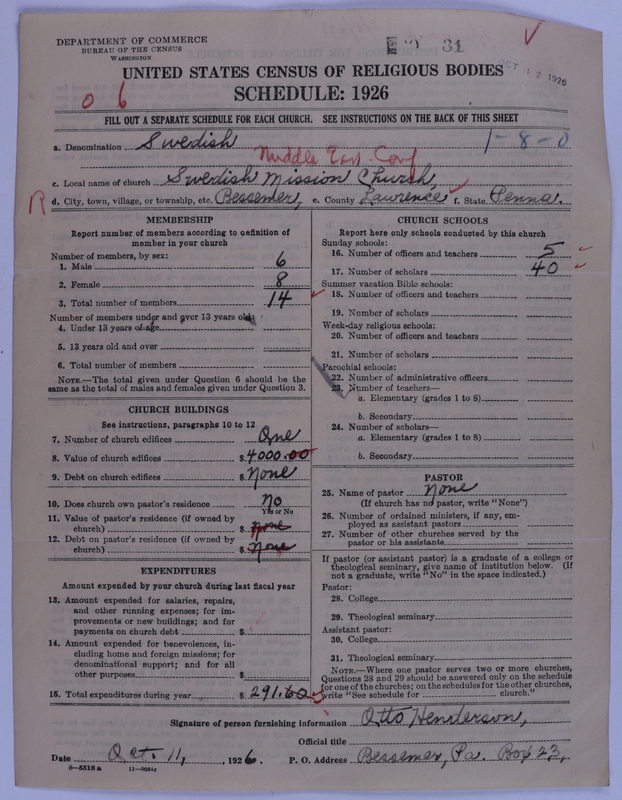 DEPARTMENT OF COMMERCE
BUREAU OF THE CENSUS
WASHINGTON
31
OCT 12 1926
UNITED STATES CENSUS OF RELIGIOUS BODIES
SCHEDULE: 1926
FILL OUT A SEPARATE SCHEDULE FOR EACH CHURCH. SEE INSTRUCTIONS ON THE BACK OF THIS SHEET
a. Denomination Swedish
1-8-0
Middle East Conf
c. Local name of church Swedish Mission Church,
R
d. City, town, village, or township, etc. Bessemer, e. County Lawrence f. State Penna.
MEMBERSHIP
Report number of members according to definition of
member in your church
Number of members, by sex:
1. Male 6
2. Female 8
3. Total number of members 14
Number of members under and over 13 years old:
4. Under 13 years of age
5. 13 years old and over
6. Total number of members
NOTE.—The total given under Question 6 should be the
same as the total of males and females given under Question 3.
CHURCH BUILDINGS
See instructions, paragraphs 10 to 12
7. Number of church edifices One
8. Value of church edifices $ 4000.00
9. Debt on church edifices $ None
10. Does church own pastor's residence No
Yes or No
11. Value of pastor's residence (if owned by
church) $ None
12. Debt on pastor's residence (if owned by
church) $ None
EXPENDITURES
Amount expended by your church during last fiscal year
13. Amount expended for salaries, repairs,
and other running expenses; for im-
provements or new buildings; and for
payments on church debt $
14. Amount expended for benevolences, in-
cluding home and foreign missions; for
denominational support; and for all
other purposes $
15. Total expenditures during year $ 291.60
CHURCH SCHOOLS
Report here only schools conducted by this church
Sunday schools:
16. Number of officers and teachers 5
17. Number of scholars 40
Summer vacation Bible schools:
18. Number of officers and teachers
19. Number of scholars
Week-day religious schools:
20. Number of officers and teachers
21. Number of scholars
Parochial schools:
22. Number of administrative officers
23. Number of teachers—
a. Elementary (grades 1 to 8)
b. Secondary
24. Number of scholars—
a. Elementary (grades 1 to 8)
b. Secondary
PASTOR
25. Name of pastor None
(If church has no pastor, write "None")
26. Number of ordained ministers, if any, em-
ployed as assistant pastors
27. Number of other churches served by the
pastor or his assistants
If pastor (or assistant pastor) is a graduate of a college or
theological seminary, give name of institution below. (If
not a graduate, write "No" in the space indicated.)
Pastor:
28. College
29. Theological seminary
Assistant pastor:
30. College
31. Theological seminary
NOTE.—Where one pastor serves two or more churches,
Questions 28 and 29 should be answered only on the schedule
for one of the churches; on the schedules for the other churches,
write "See schedule for church."
Signature of person furnishing information Otto Henderson,
Official title
Date Oct. 11, 1926. P. O. Address Bessemer, Pa. Box 23,
8—5318a 11—9054c